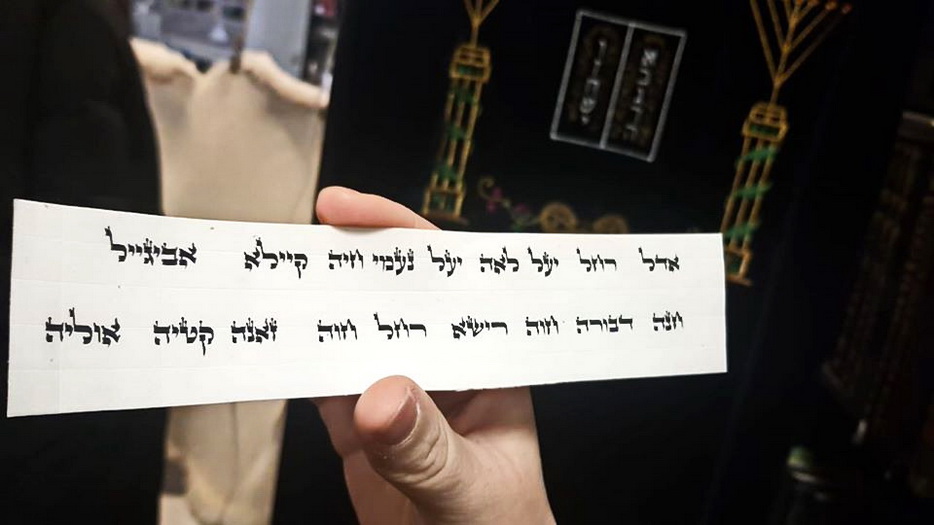 אדל רחל יעל לאה יעל נעמי חיה קיילא אביגייל
חנה דבורה חוה רישא רחל חוה זאנה קטיה אוליה